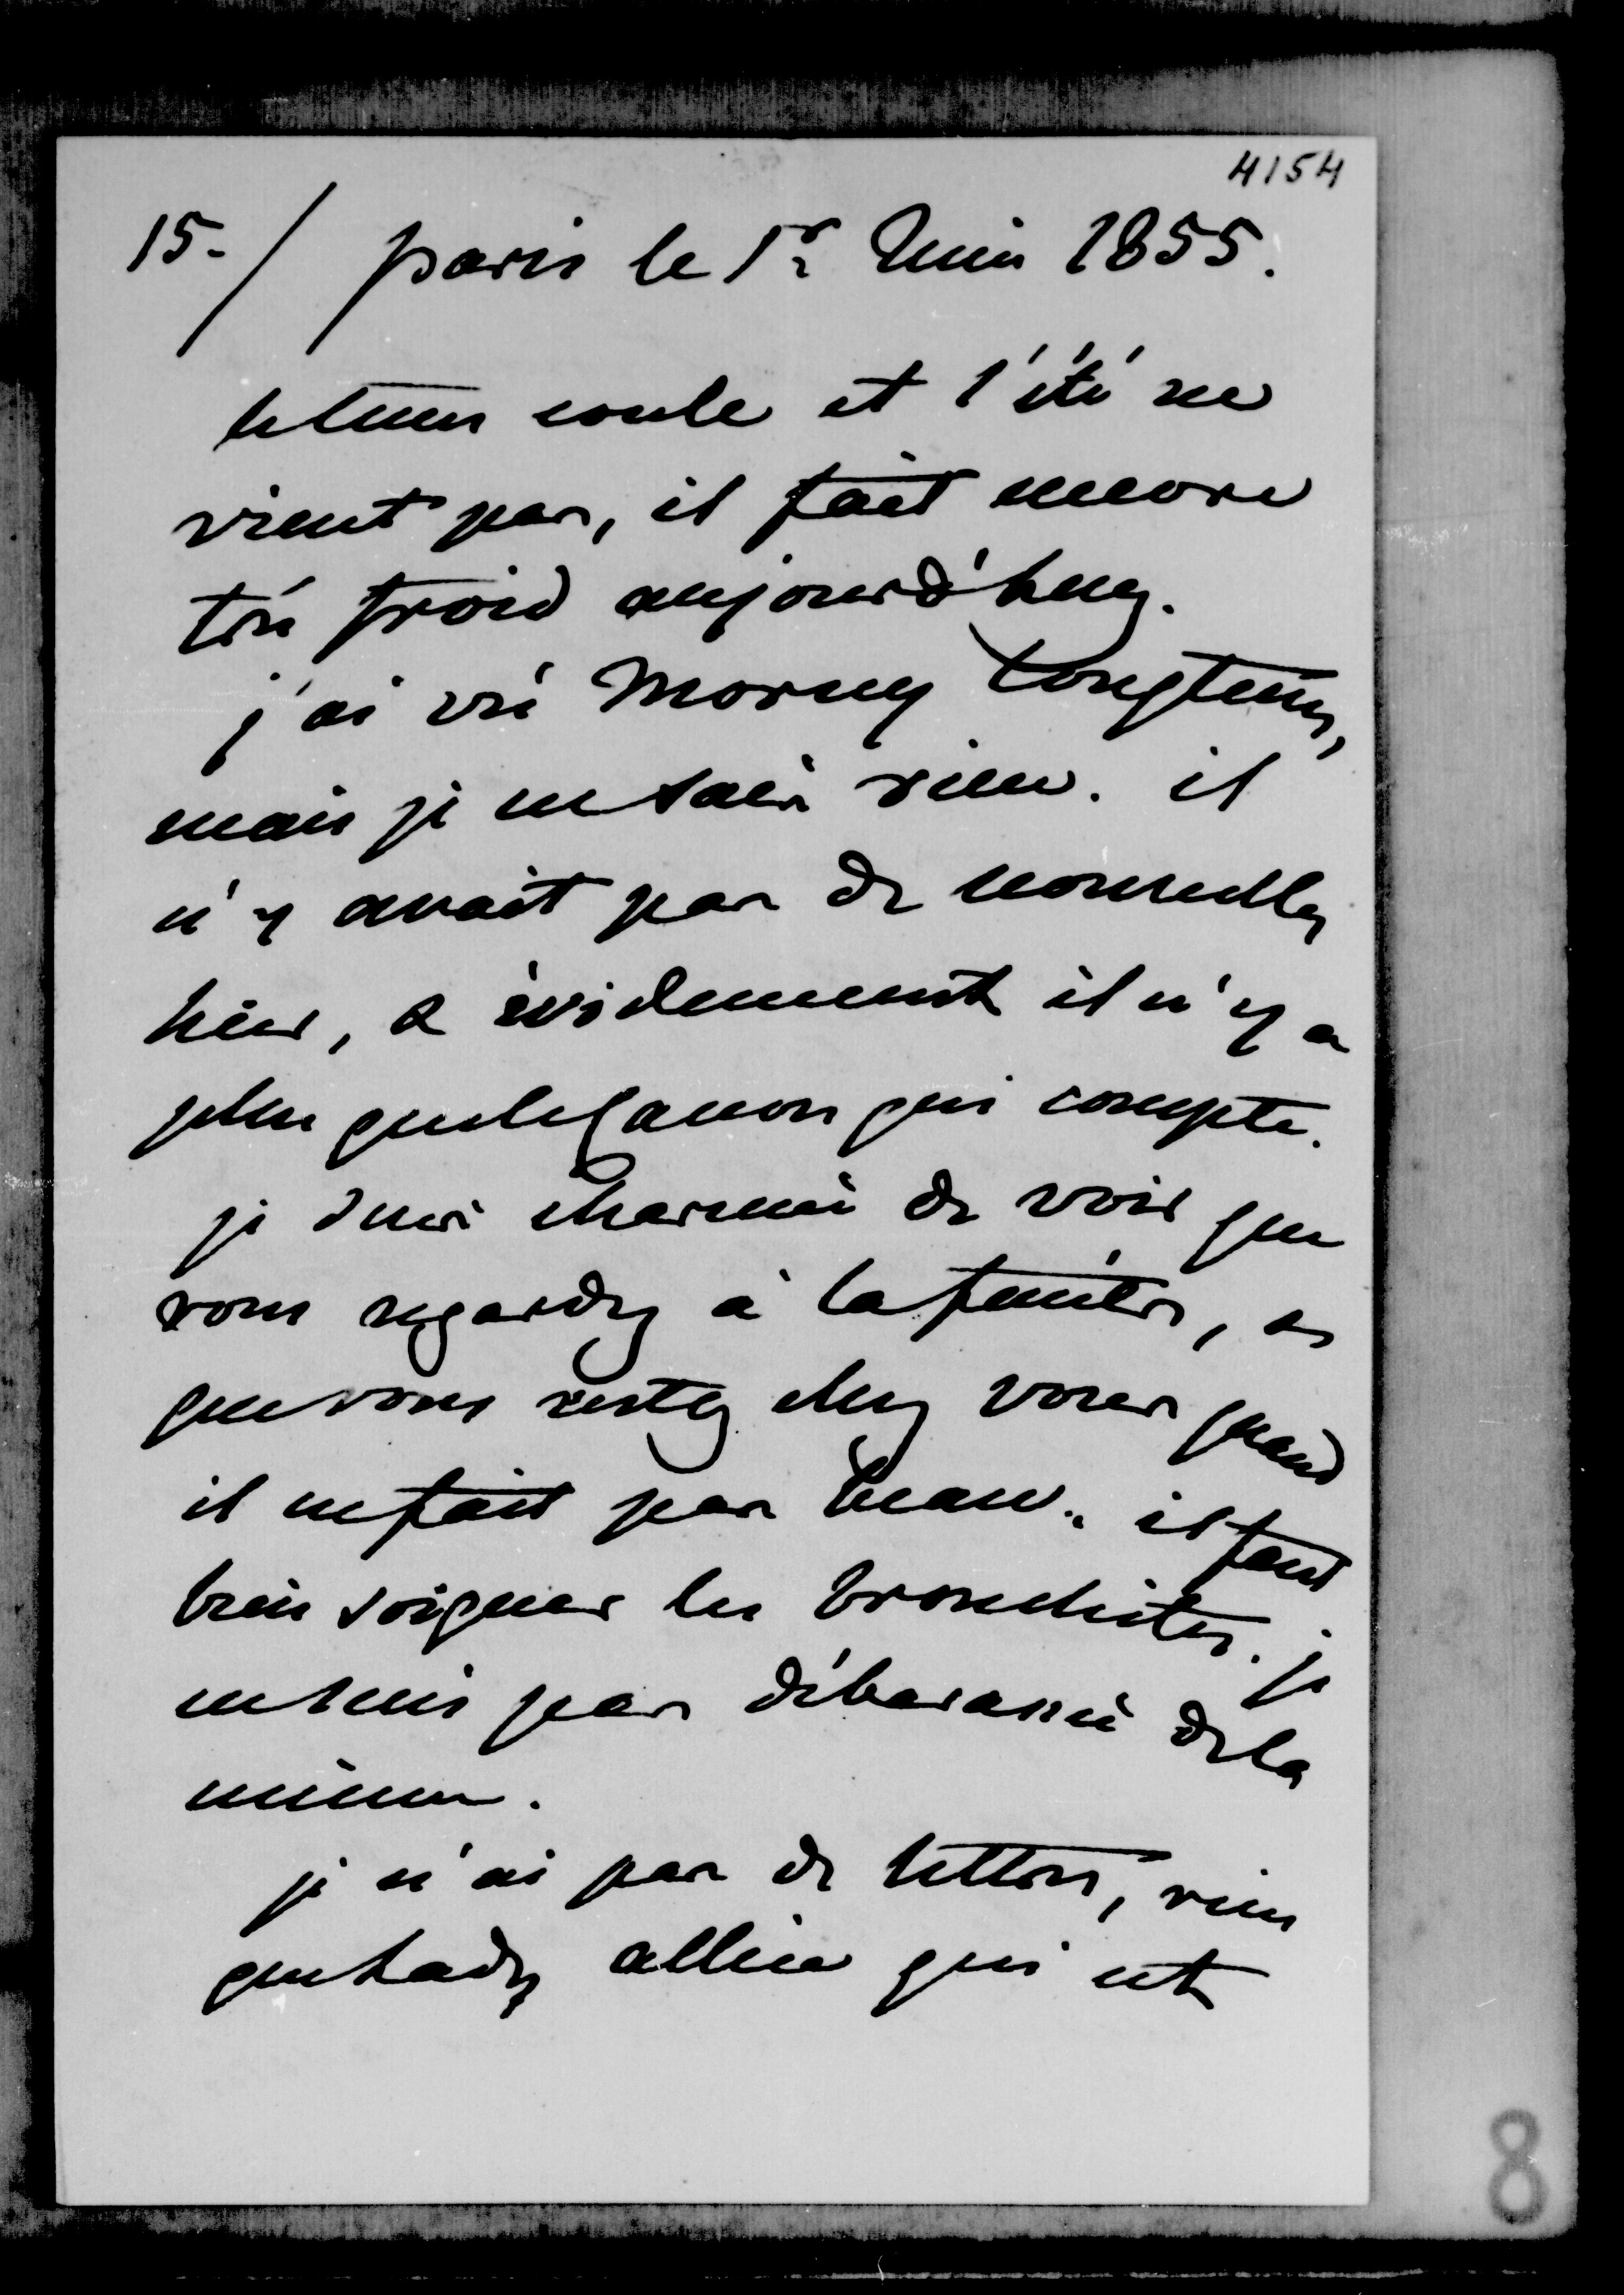 4154
15./ paris le 1er Juin 1855.
le tems coule et l'été ne
vient pas, il fait encore
très froid aujourd'huy.
j'ai vu Morny longtems,
mais je ne sais rien. il
n'y avait pas de nouvelles
hier, & évidemment il n'y a
plus que le canon qui compte.
je suis charmée de voir que
vous regardez à la fenêtre, &
que vous restez chez vous quand
il ne fait pas beau. il faut
bien soigner les bronchites. je
ne suis pas débarassée de la
mienne.
je n'ai pas de lettres, rien
que Lady allice qui est
8